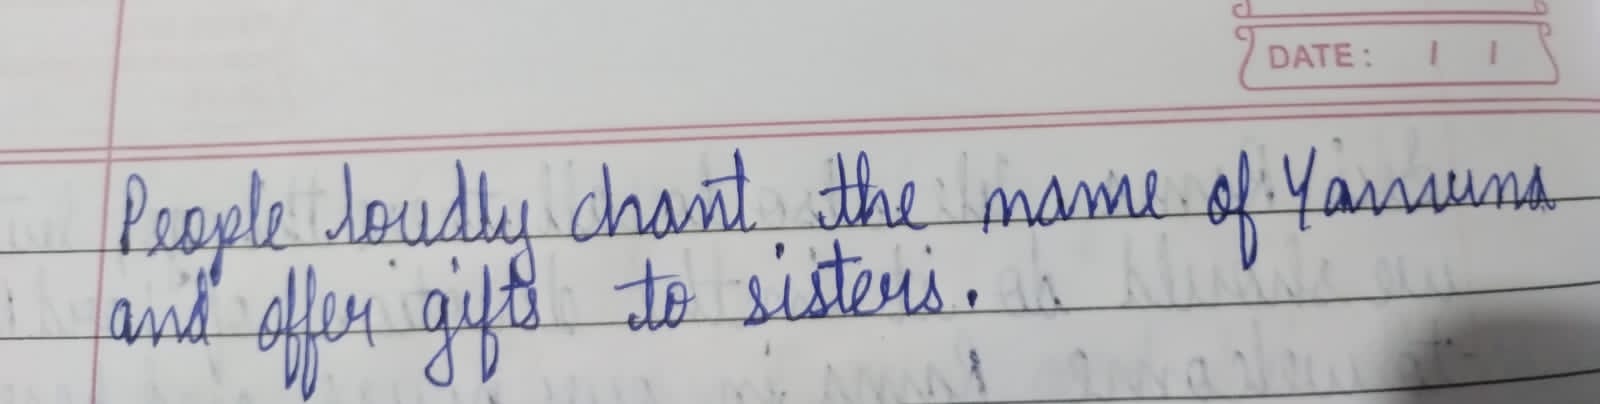 DATE: / /
People loudly chant the name of Yamuna
and offer gifts to sisters.